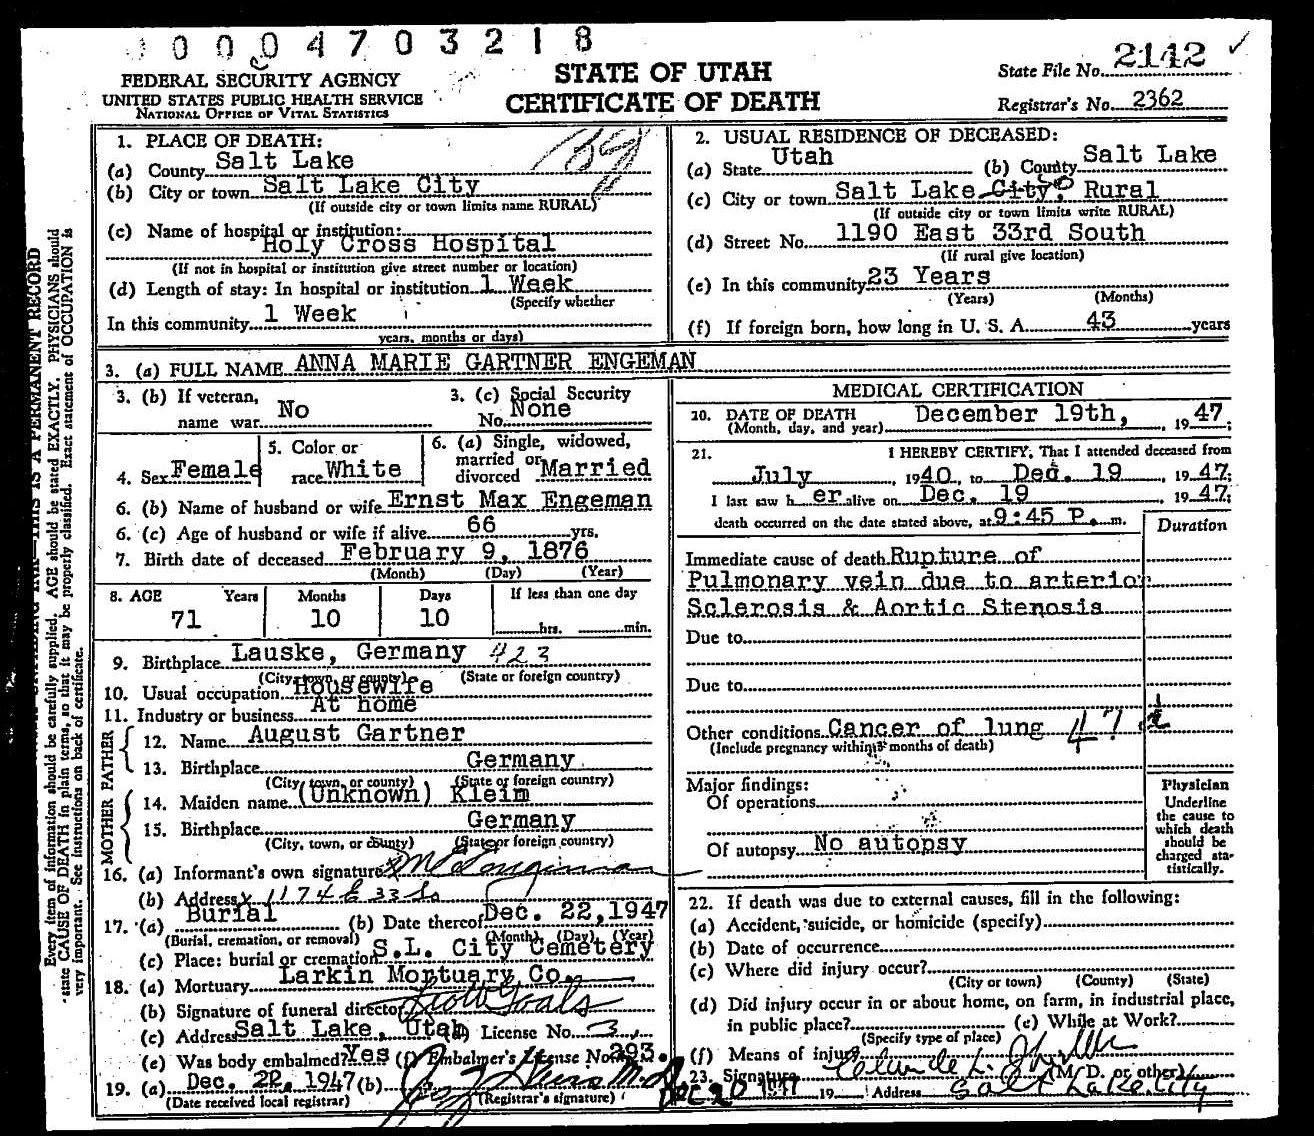 0 0 0 4 7 0 3 2 1 8
FEDERAL SECURITY AGENCY
UNITED STATES PUBLIC HEALTH SERVICE
NATIONAL OFFICE OF VITAL STATISTICS
STATE OF UTAH
CERTIFICATE OF DEATH
State File No. 2142 ✓
Registrar's No. 2362
1. PLACE OF DEATH:
(a) County Salt Lake
(b) City or town Salt Lake City
(If outside city or town limits name RURAL)
(c) Name of hospital or institution:
Holy Cross Hospital
(If not in hospital or institution give street number or location)
(d) Length of stay: In hospital or institution 1 Week
(Specify whether
In this community 1 Week
years, months or days)
2. USUAL RESIDENCE OF DECEASED:
(a) State Utah (b) County Salt Lake
(c) City or town Salt Lake City, Rural
(If outside city or town limits write RURAL)
(d) Street No. 1190 East 33rd South
(If rural give location)
(e) In this community 23 Years
(Years) (Months)
(f) If foreign born, how long in U. S. A. 43 years
3. (a) FULL NAME ANNA MARIE GARTNER ENGEMAN
3. (b) If veteran, name war No
3. (c) Social Security No. None
4. Sex Female
5. Color or race White
6. (a) Single, widowed, married or divorced Married
6. (b) Name of husband or wife Ernst Max Engeman
6. (c) Age of husband or wife if alive 66 yrs.
7. Birth date of deceased February 9, 1876
(Month) (Day) (Year)
8. AGE Years Months Days If less than one day
71 10 10 hrs. min.
9. Birthplace Lauske, Germany 423
(City, town, or county) (State or foreign country)
10. Usual occupation Housewife
11. Industry or business At home
FATHER
12. Name August Gartner
13. Birthplace Germany
(City, town, or county) (State or foreign country)
MOTHER
14. Maiden name (Unknown) Kleim
15. Birthplace Germany
(City, town, or county) (State or foreign country)
16. (a) Informant's own signature
(b) Address x 1174 E 33 So
17. (a) Burial (b) Date thereof Dec. 22, 1947
(Burial, cremation, or removal) (Month) (Day) (Year)
(c) Place: burial or cremation S.L. City Cemetery
18. (a) Mortuary Larkin Mortuary Co.
(b) Signature of funeral director
(c) Address Salt Lake, Utah (d) License No. 3
(e) Was body embalmed? Yes (f) Embalmer's License No. 293.
19. (a) Dec. 22, 1947 (b)
(Date received local registrar) (Registrar's signature)
MEDICAL CERTIFICATION
20. DATE OF DEATH December 19th, 1947;
(Month, day, and year)
21. I HEREBY CERTIFY, That I attended deceased from
July, 1940, to Dec. 19, 1947;
I last saw h er alive on Dec. 19, 1947;
death occurred on the date stated above, at 9:45 P. m.
Duration
Immediate cause of death Rupture of
Pulmonary vein due to arterio
Sclerosis & Aortic Stenosis
Due to
Due to
Other conditions Cancer of lung 47
(Include pregnancy within 3 months of death)
Major findings:
Of operations
Of autopsy No autopsy
Physician
Underline
the cause to
which death
should be
charged sta-
tistically.
22. If death was due to external causes, fill in the following:
(a) Accident, suicide, or homicide (specify)
(b) Date of occurrence
(c) Where did injury occur?
(City or town) (County) (State)
(d) Did injury occur in or about home, on farm, in industrial place,
in public place? (e) While at Work?
(Specify type of place)
(f) Means of injury
23. Signature (M. D. or other)
DEC 20 1947 19 Address Salt Lake City
Every item of information should be carefully supplied. AGE should be stated EXACTLY. PHYSICIANS should
state CAUSE OF DEATH in plain terms, so that it may be properly classified. Exact statement of OCCUPATION is
very important. See instructions on back of certificate.
THIS IS A PERMANENT RECORD